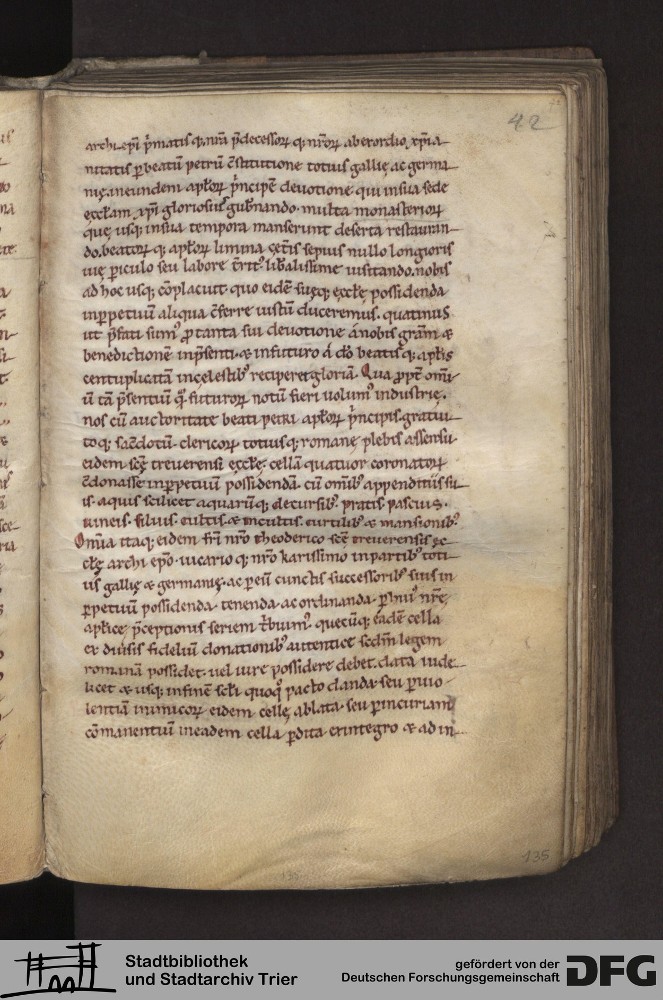 42
archiepi p̄matis q; nr̄a p̄decessoꝝ q; nr̄oꝝ ab exordio xp̄ia
nitatis p̱ beatū petrū c̄stitutione totius gallię ac germa
nię. a n eundem apl̄oꝝ p̄ncipē deuotione qui in sua sede
ęccl̄am xp̄i gloriosius gub̄nando. multa monasterioꝝ
que usq; in sua tempora manserunt deserta restauran
do. beatoꝝ q; apl̄oꝝ limina cęt̄is sepius nullo longioris
uię p̱iculo seu labore t̄rit᾽ lib̄alissime uisitando. nobis
ad hoc usq; cōplacuit. quo eidē suęq; ęccl̄ę possidenda
inp̱petuū aliqua c̄ferre iustū duceremus. quatinus
ut p̄fati sum᾽ ꝓ tanta sui deuotione á nobis gr̄am &
benedictionē in p̄senti. & in futuro á dō beatis q; apl̄is
centuplicatā in cęlestib᾽ reciperet gloriā. Qua ꝓpt̄ om̄i
ū tā p̄sentiū q̄ futuroꝝ notū fieri uolum᾽ industrię.
nos cū auctoritate beati petri apl̄oꝝ p̄ncipis. gratui
to q; sac̄dotū. clericoꝝ totius q; romanę plebis assensu
eidem scę̄ treuerensi ęccl̄ę. cellā quatuor coronatoꝝ
c̄donasse inp̱petuū possidendā. cū om̄ib᾽ appenditiis su
is. aquis scilicet aquarūq; decursib᾽. pratis. pascuis.
iuncis. siluis. cultis. & incultis. curtilib᾽ & mansionib᾽.
Om̄ia itaq; eidem fr̄i nr̄o theoderico scę̄ treuerensis ęc
cl̄ę archi ep̄o. uicario q; nr̄o karissimo in partib᾽ toti
us gallię & germanię. ac p̱ eū cunctis successorib᾽ suis in
p̱petuū possidenda. tenenda. ac ordinanda. p̱ hui᾽ nr̄ę
apl̄ice p̄ceptionis seriem t̄buim᾽. quecūq; eadē cella
ex diu̓sis fideliū donationib᾽ autentice sc̄dm legem
romanā possidet. uel iure possidere debet. data uide
licet & usq; in finē scl̄i quoq̄ pacto danda. seu p̱ uio
lentiā inimicoꝝ eidem cellę ablata. seu p̱ incuriam
cōmanentiū in eadem cella p̱dita. ex integro & ad in
135
135
Stadtbibliothek
und Stadtarchiv Trier
gefördert von der
Deutschen Forschungsgemeinschaft
DFG